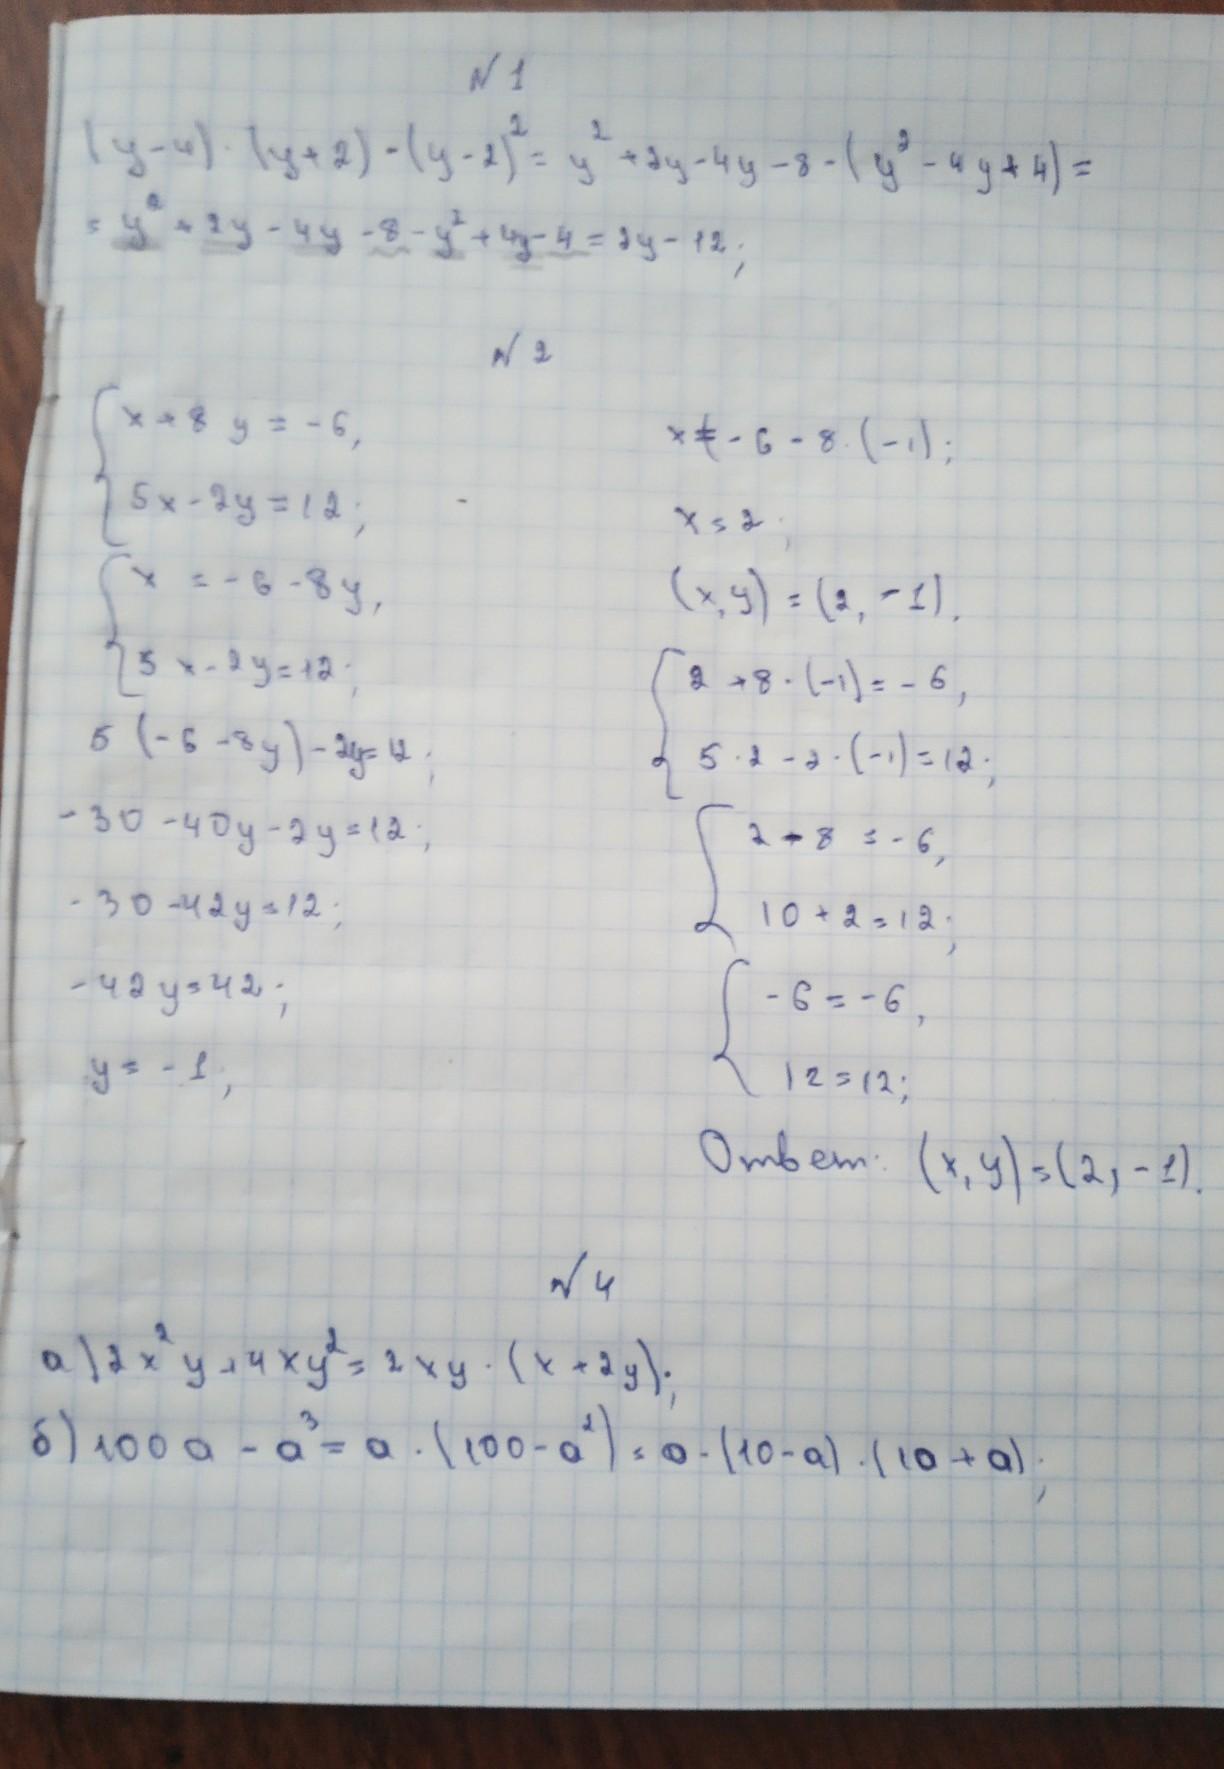 №1
(y-4)·(y+2)-(y-2)²=y²+2y-4y-8-(y²-4y+4)=
=y²+2y-4y-8-y²+4y-4=2y-12;
№2
{x+8y=-6,
5x-2y=12;
{x=-6-8y,
5x-2y=12;
5(-6-8y)-2y=12;
-30-40y-2y=12;
-30-42y=12;
-42y=42;
y=-1;
x=-6-8·(-1);
x=2;
(x,y)=(2,-1).
{2+8·(-1)=-6,
5·2-2·(-1)=12;
{2-8=-6,
10+2=12;
{-6=-6,
12=12;
Ответ: (x,y)=(2,-1).
№4
а)2x²y+4xy²=2xy·(x+2y);
б)100a-a³=a·(100-a²)=a·(10-a)·(10+a);